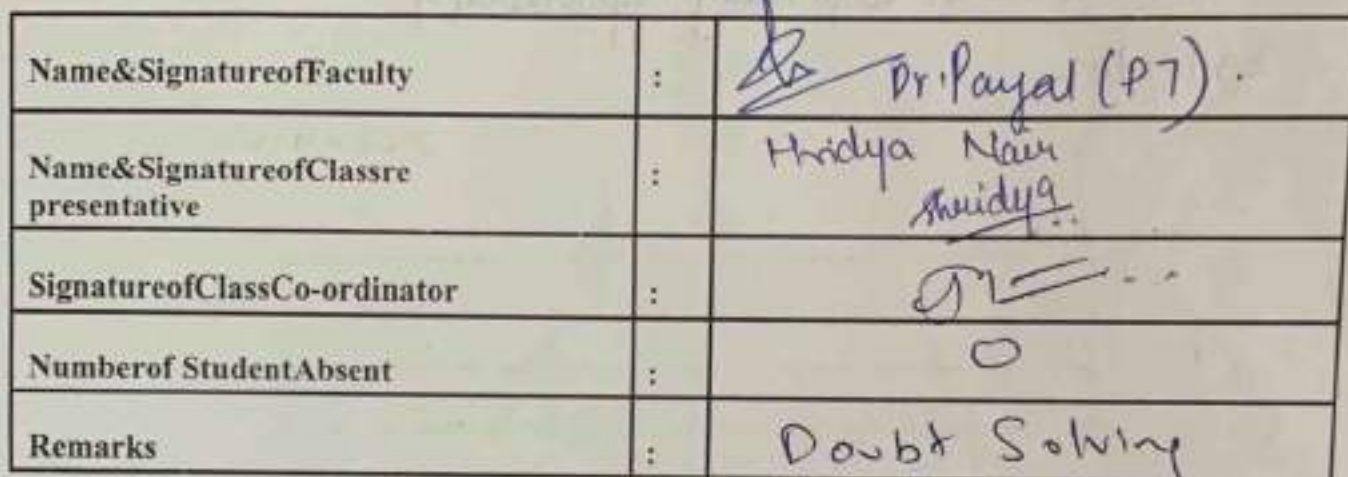 Name&SignatureofFaculty : Dr. Payal (PT).
Name&SignatureofClassre
presentative : Hridya Nair
Shridya
SignatureofClassCo-ordinator :
Numberof StudentAbsent : 0
Remarks : Doubt Solving